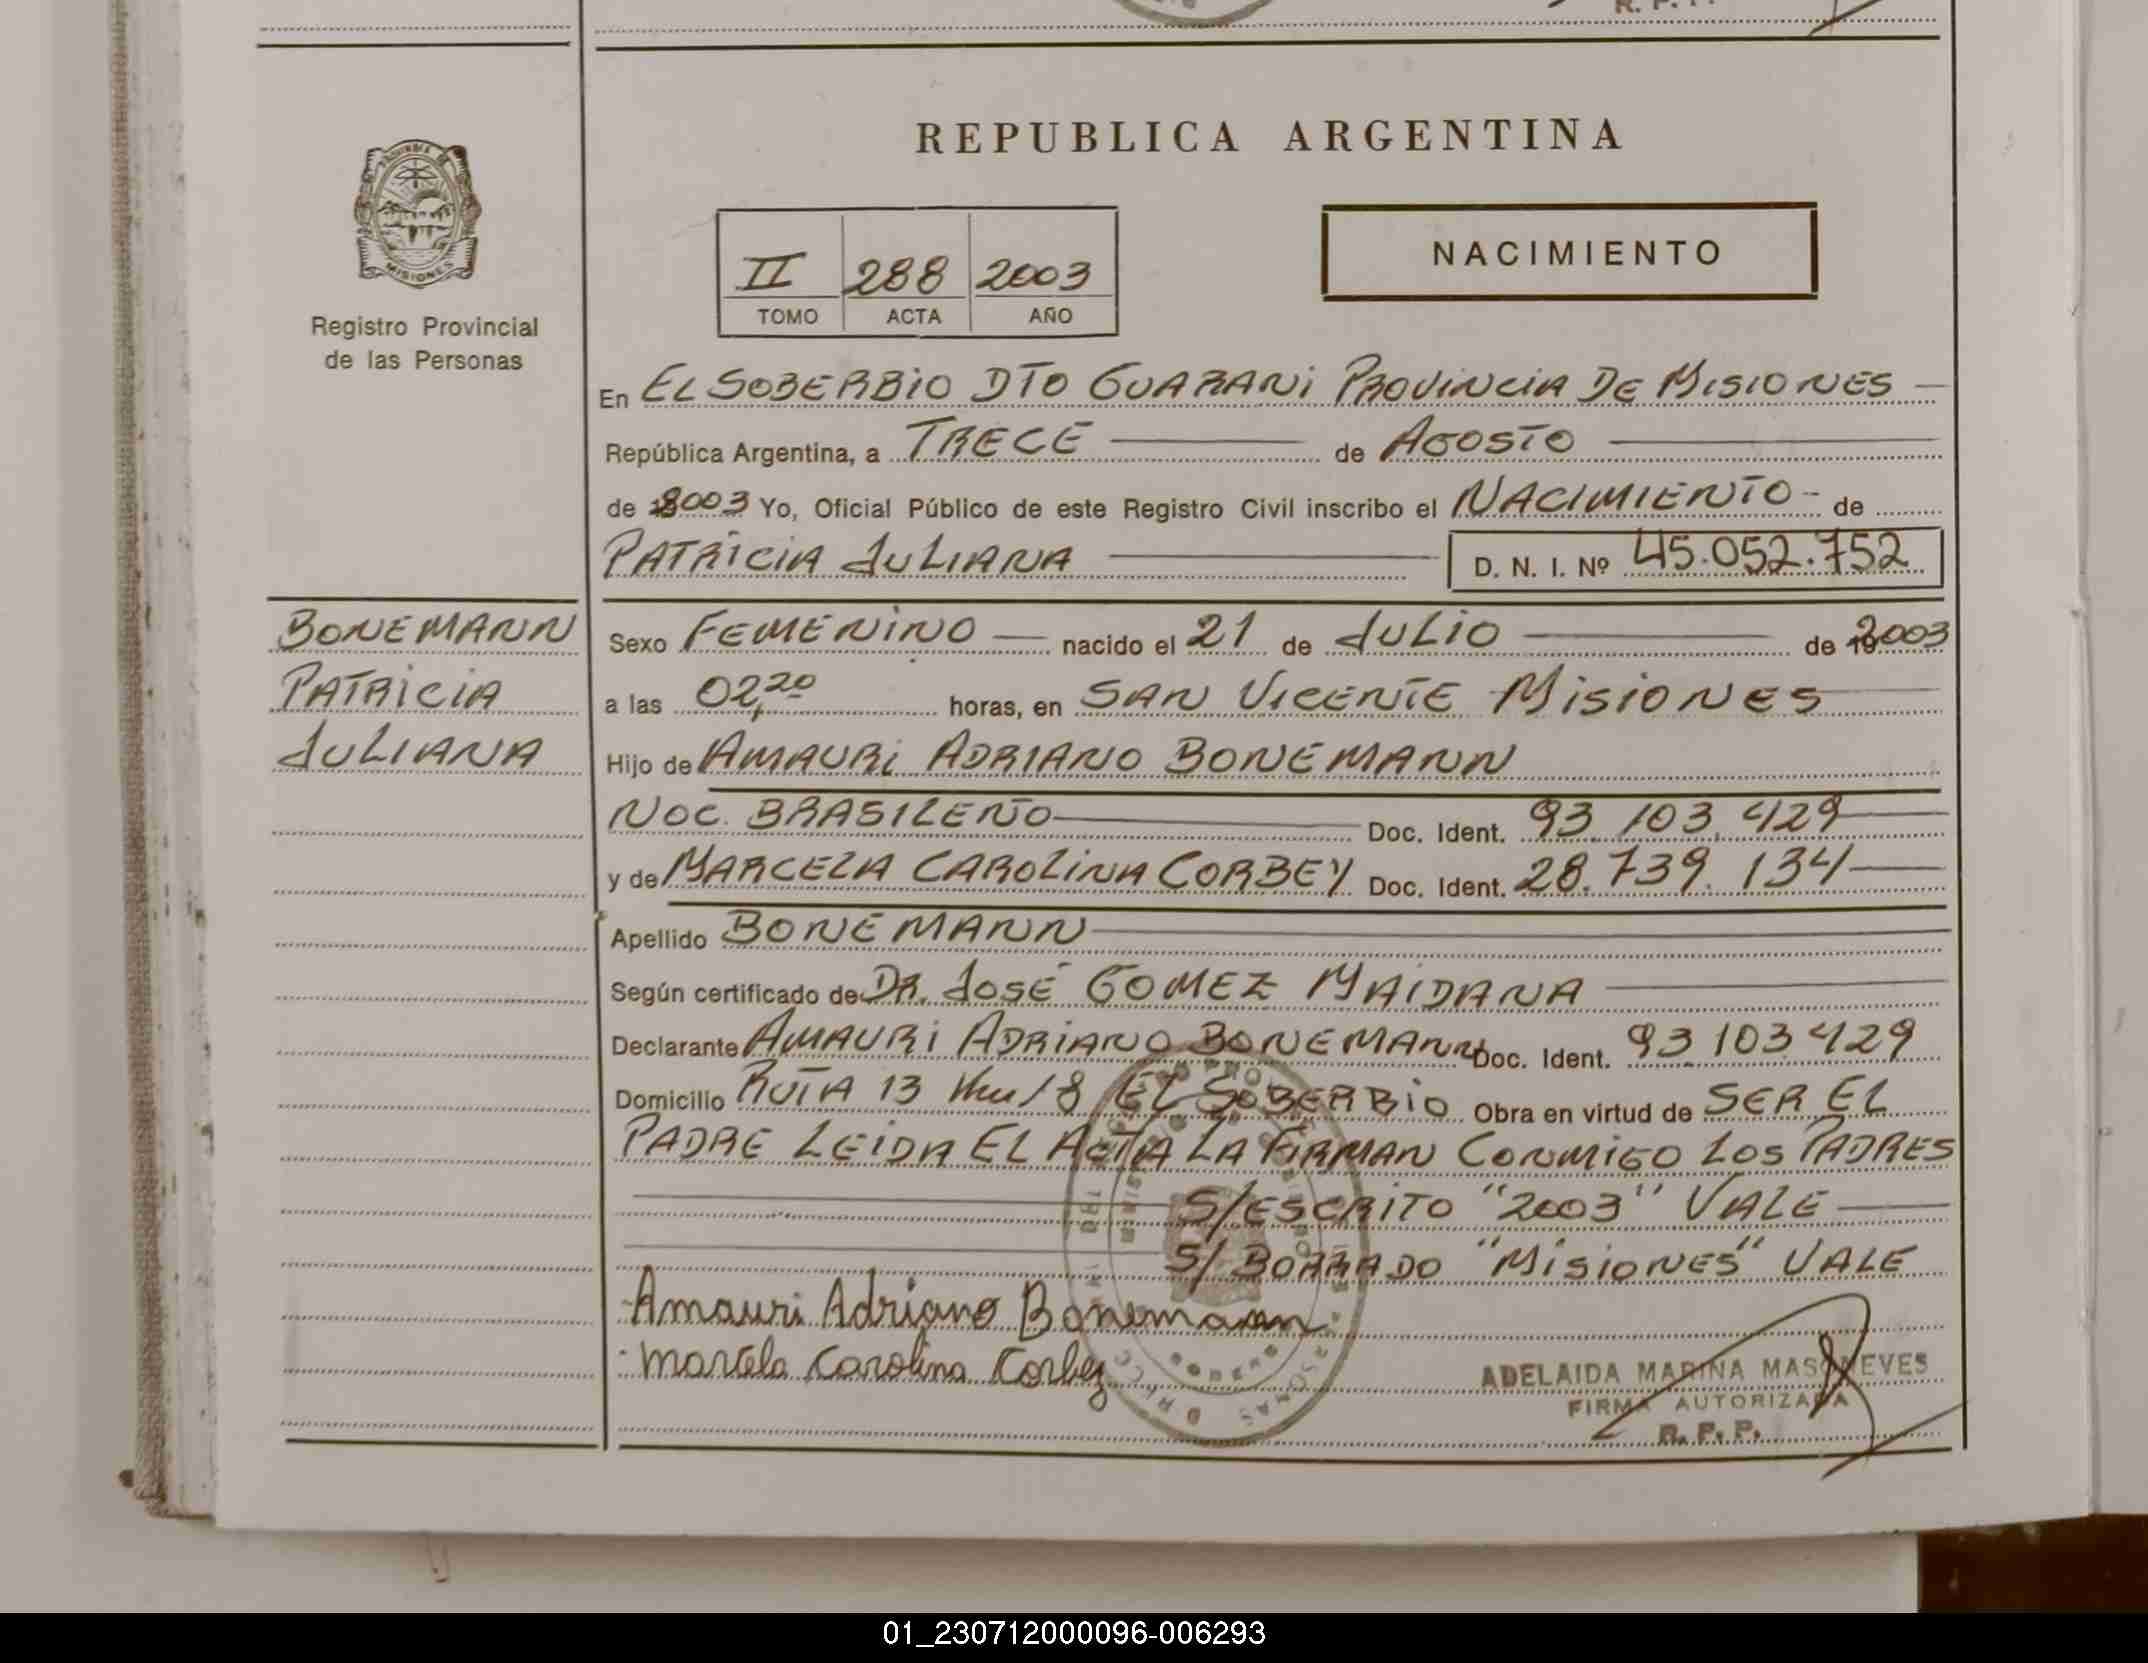 R. P. P.
PROVINCIA DE
MISIONES
Registro Provincial
de las Personas
REPUBLICA ARGENTINA
II 288 2003
TOMO ACTA AÑO
NACIMIENTO
En EL SOBERBIO DTO GUARANI PROVINCIA DE MISIONES
República Argentina, a TRECE de AGOSTO
de 2003 Yo, Oficial Público de este Registro Civil inscribo el NACIMIENTO de
PATRICIA JULIANA D. N. I. Nº 45.052.752
BONEMANN
PATRICIA
JULIANA
Sexo FEMENINO nacido el 21 de JULIO de 2003
a las 02,20 horas, en SAN VICENTE MISIONES
Hijo de AMAURI ADRIANO BONEMANN
NAC. BRASILEÑO Doc. Ident. 93.103.429
y de MARCELA CAROLINA CORBEY Doc. Ident. 28.739.134
Apellido BONEMANN
Según certificado de DR. JOSÉ GOMEZ MAIDANA
Declarante AMAURI ADRIANO BONEMANN Doc. Ident. 93103429
Domicilio RUTA 13 Km 18 EL SOBERBIO Obra en virtud de SER EL
PADRE LEIDA EL ACTA LA FIRMAN CONMIGO LOS PADRES
S/ESCRITO "2003" VALE
S/BORRADO "MISIONES" VALE
Amauri Adriano Bonemann
Marcela Carolina Corbey
ADELAIDA MARINA
FIRMA AUTORIZADA
R. P. P.
01_230712000096-006293